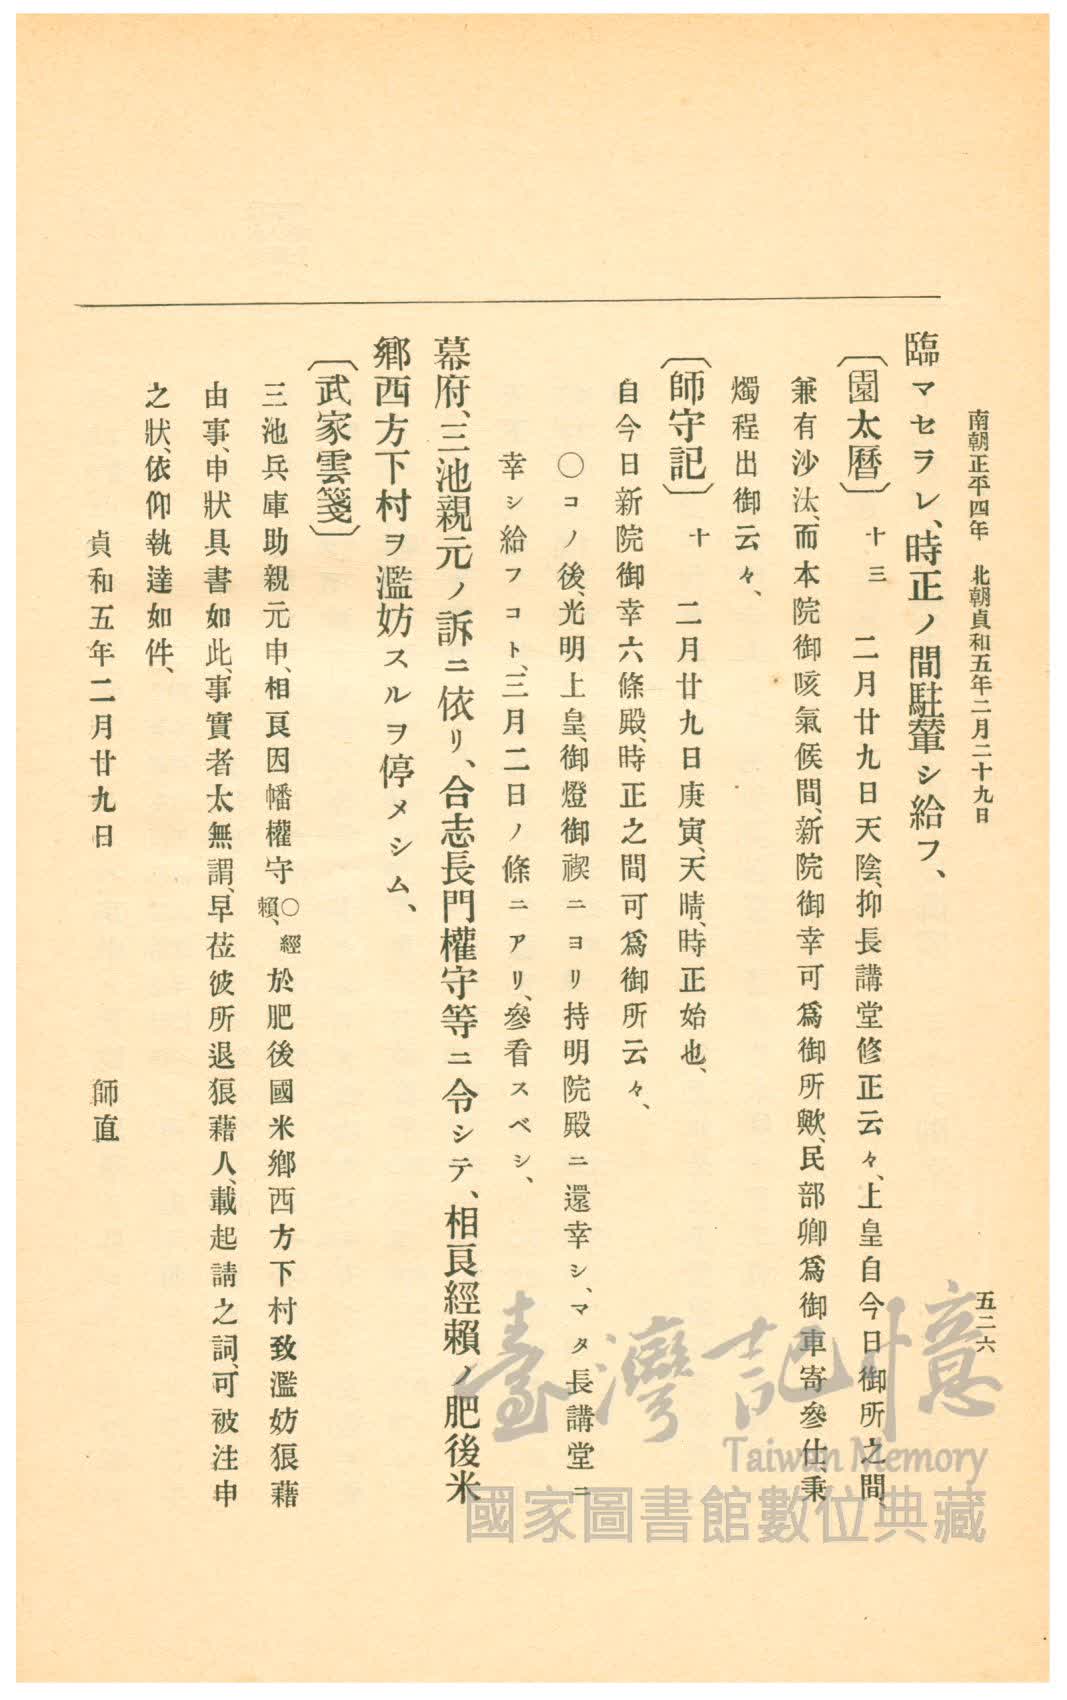 南朝正平四年 北朝貞和五年二月二十九日
五二六
臨マセラレ、時正ノ間駐輦シ給フ、
〔園太曆〕 十三 二月廿九日天陰、抑長講堂修正云々、上皇自今日御所之間、
兼有沙汰、而本院御咳氣候間、新院御幸可爲御所歟、民部卿爲御車寄參仕、秉
燭程出御云々、
〔師守記〕 十 二月廿九日庚寅、天晴、時正始也、
自今日新院御幸六條殿、時正之間可爲御所云々、
〇コノ後、光明上皇、御燈御禊ニヨリ持明院殿ニ還幸シ、マタ長講堂ニ
幸シ給フコト、三月二日ノ條ニアリ、參看スベシ、
幕府、三池親元ノ訴ニ依リ、合志長門權守等ニ令シテ、相良經賴ノ肥後米
鄕西方下村ヲ濫妨スルヲ停メシム、
〔武家雲箋〕
三池兵庫助親元申、相良因幡權守〇經賴、於肥後國米鄕西方下村致濫妨狼藉
由事、申狀具書如此、事實者太無謂、早莅彼所退狼藉人、載起請之詞、可被注申
之狀、依仰執達如件、
貞和五年二月廿九日 師直
臺灣記憶
Taiwan Memory
國家圖書館數位典藏